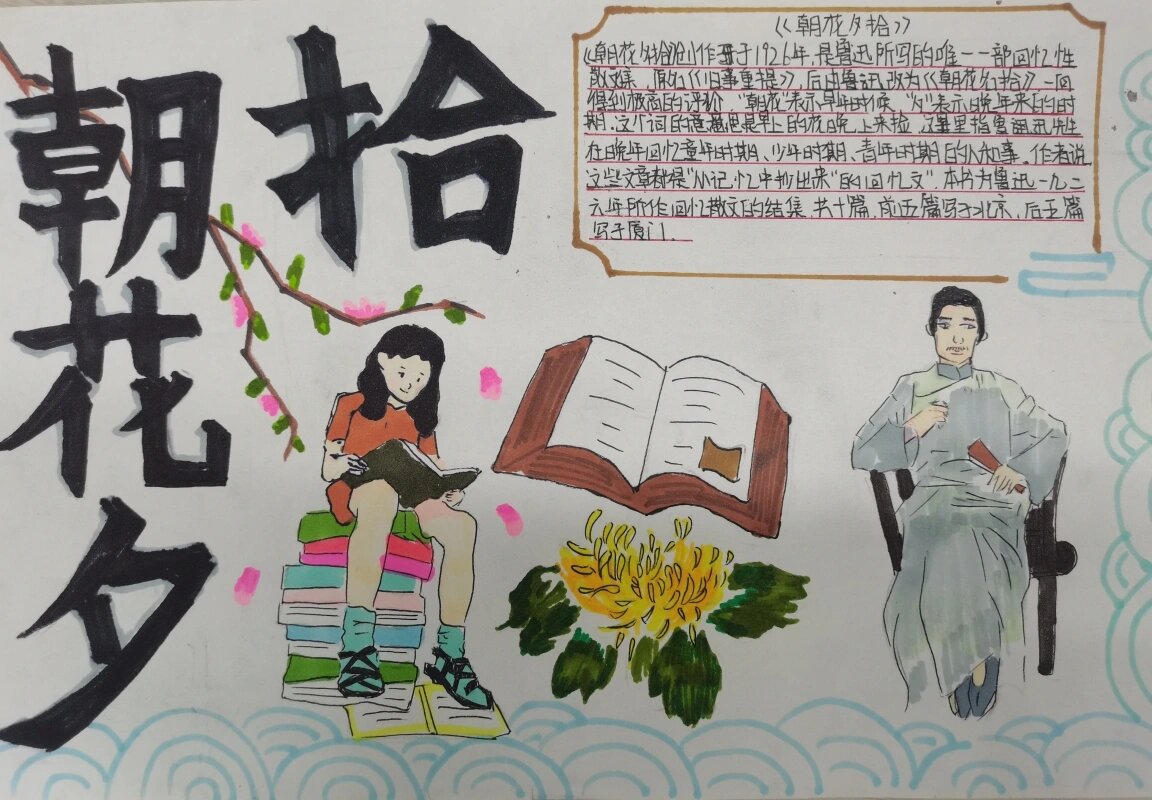 朝花夕拾
《朝花夕拾》
《朝花夕拾》创作于1926年,是鲁迅所写的唯一一部回忆性
散文集,原名《旧事重提》,后由鲁迅改为《朝花夕拾》一回
得到极高的评价."朝花"表示早年时候,"夕"表示晚年来的时
期.这个词的意思是早上的花晚上来捡,这里里指鲁迅先生
在晚年回忆童年时期、少年时期、青年时期的人和事。作者说
这些文章都是"从记忆中抄出来"的回忆文".本书为鲁迅一九二
六年所作回忆散文的结集,共十篇,前五篇写于北京,后五篇
写于厦门.